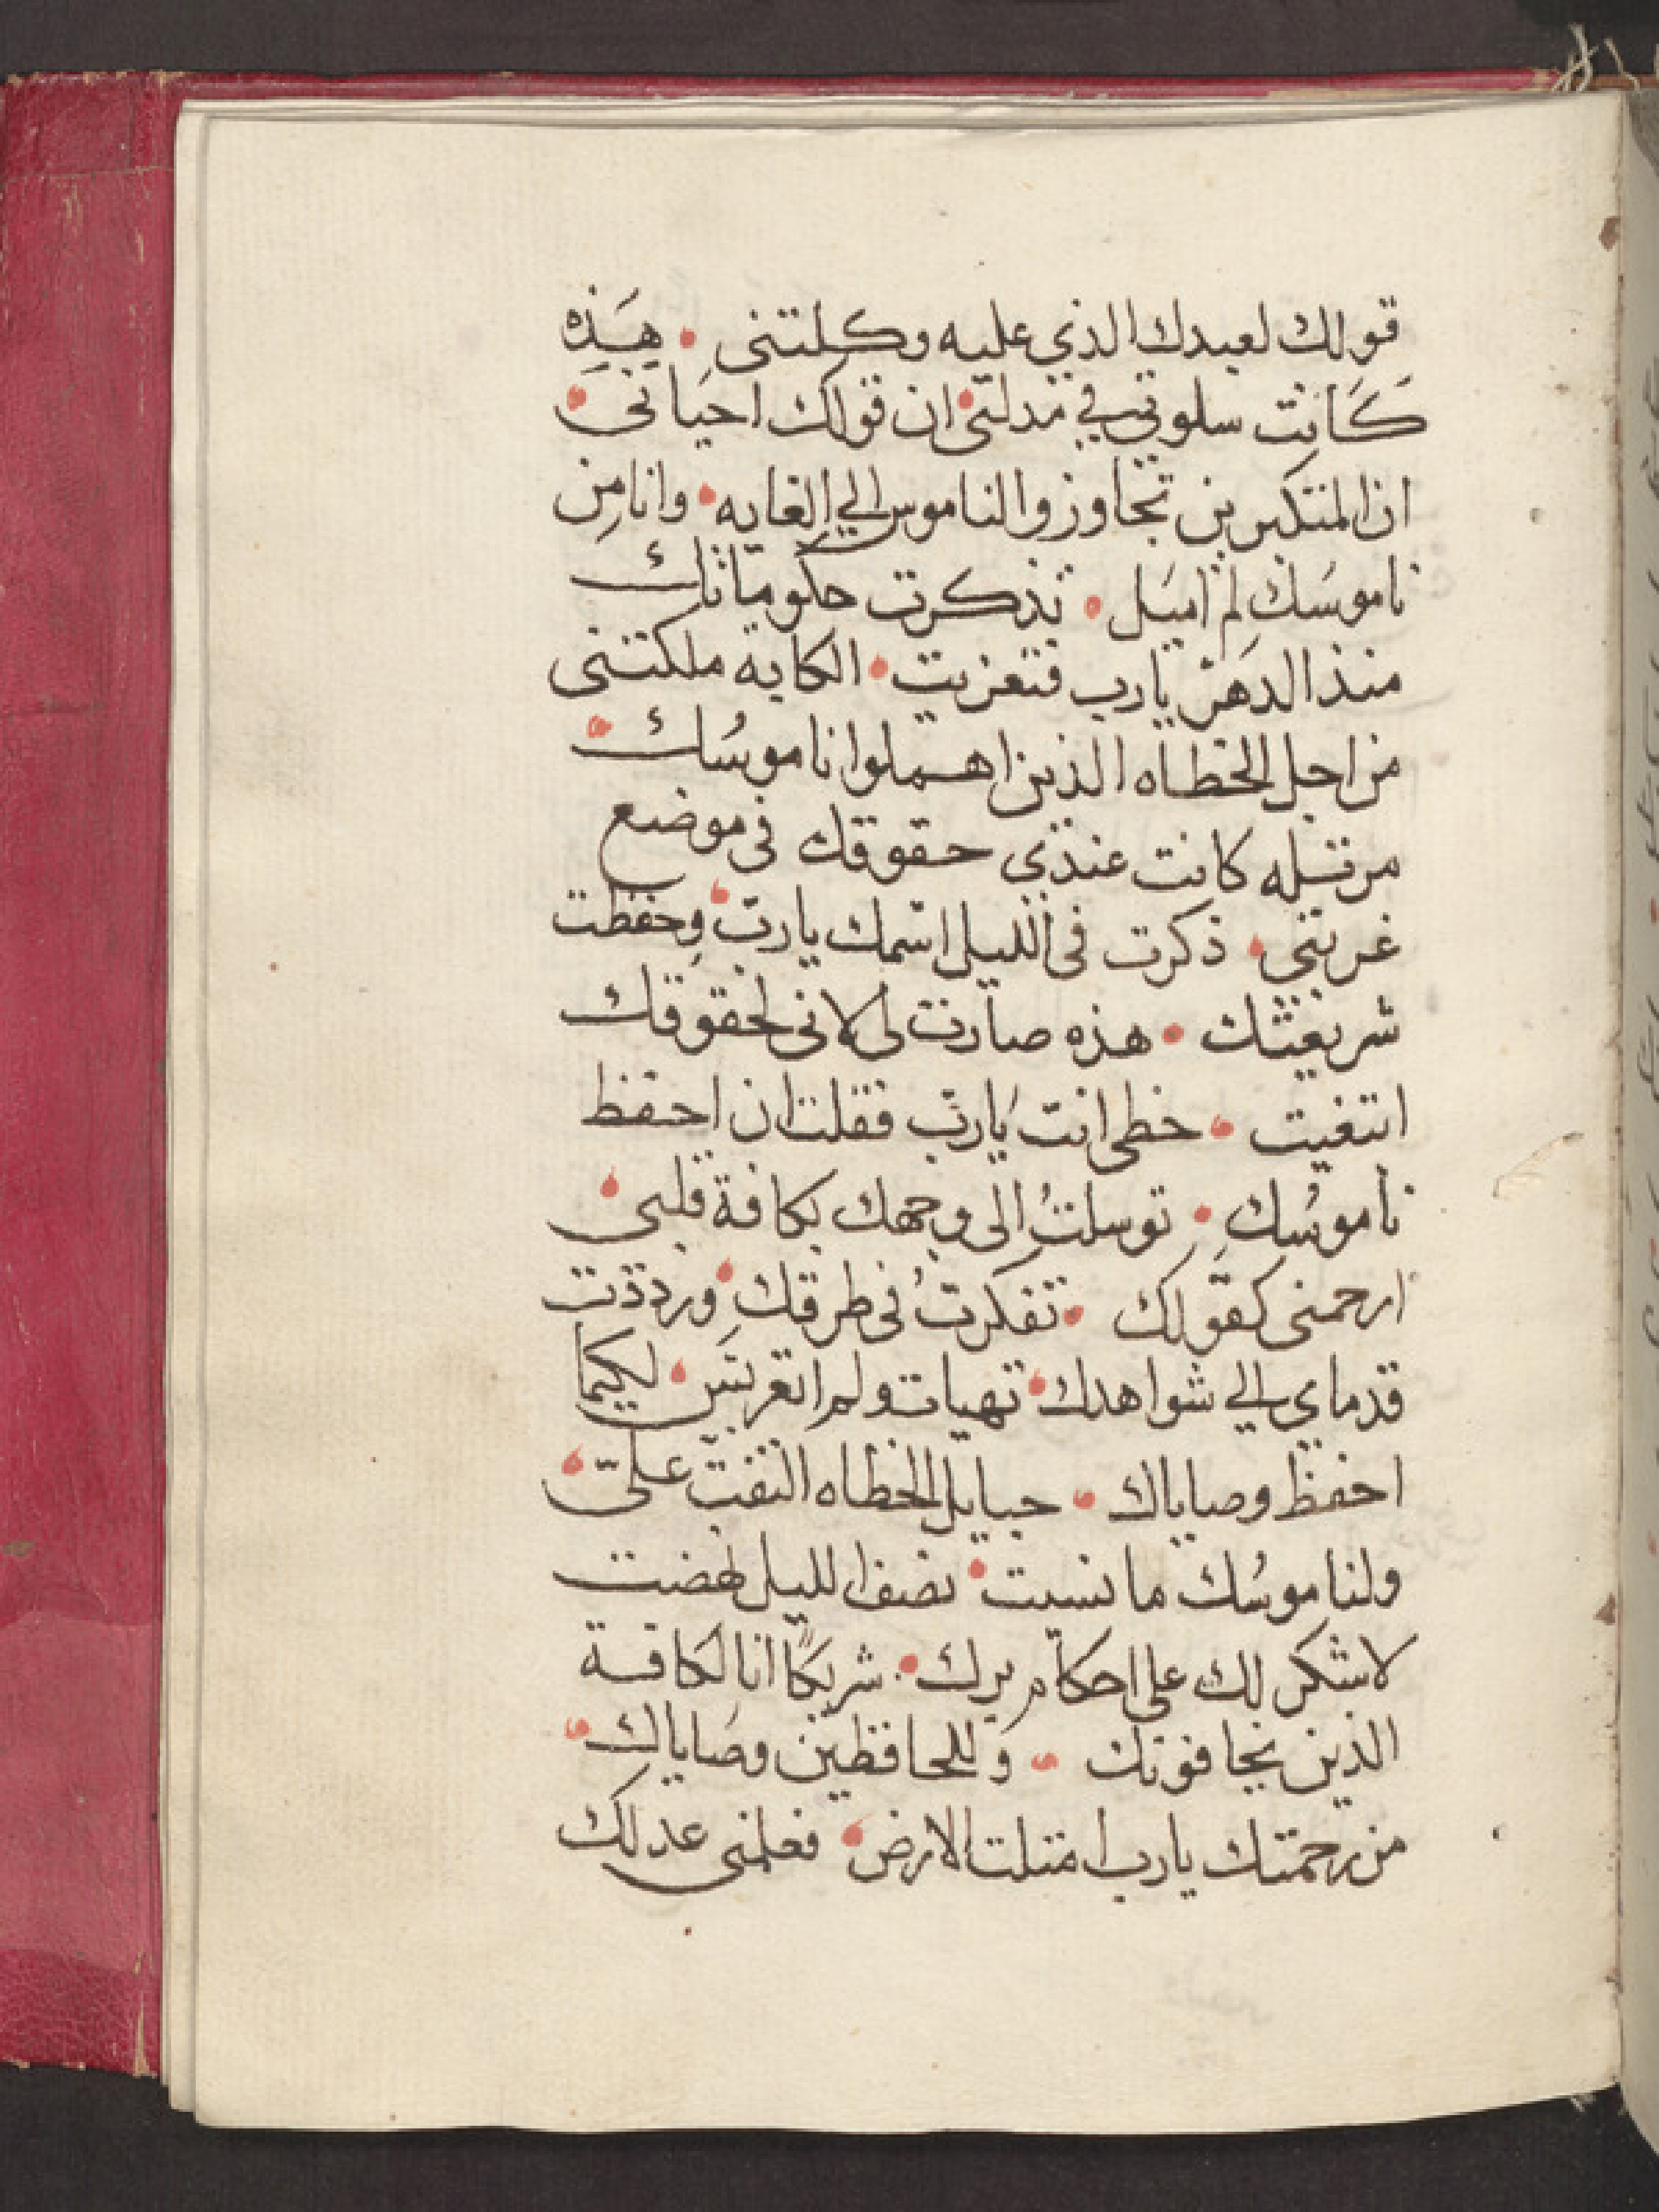 قولك لعبدك الذي عليه وكلتني • هَذِه
كَانت سلوتي في مذلتي • ان قولك احياني •
ان المتكبرين تجاوزوا الناموس الي الغايه • وانا مِن
ناموسَك لم اميَل • تذكرت حكوماتك
منذ الدهَر يارب فتعزيت • الكابة ملكتنى
من اجل الخطاه الذين اهملوا ناموسُك •
مرتله كانت عندي حقوقك فى موضع
غربتي • ذكرت فى الليل اسمك يارب • وحفظت
شريعتك • هذه صارت لى لانى لحقوقك
ابتغيت • حظى انت يَارب فقلت ان احفظ
ناموسُك • توسلتُ الى وجهك بكافة قلبي •
ارحمنى كقولك • تفكرتُ فى طرقك • ورددت
قدماي الي شواهدك • تهيات ولم اتعربَس • لكيما
احفظ وصاياك • حبايل الخطاه التفت علىّ •
ولناموسُك ما نسيت • نصف الليل نهضت
لاشكر لك على احكام برك • شريكًا انا لكافة
الذين يخافونك • وَللحافظين وصَاياك •
من رحمتك يارب امتلت الارض • فعلمنى عدلك